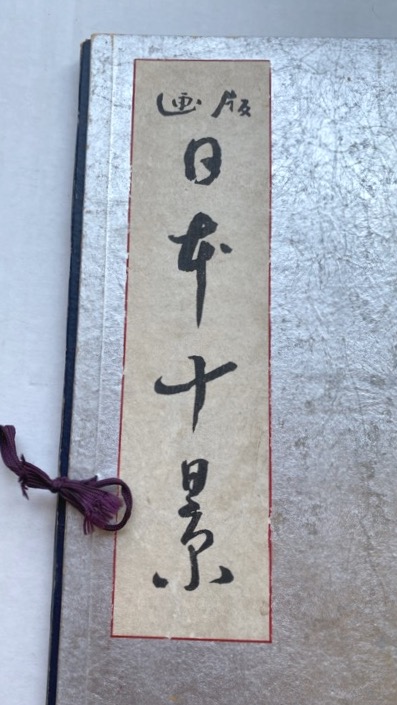 版画
日本十景